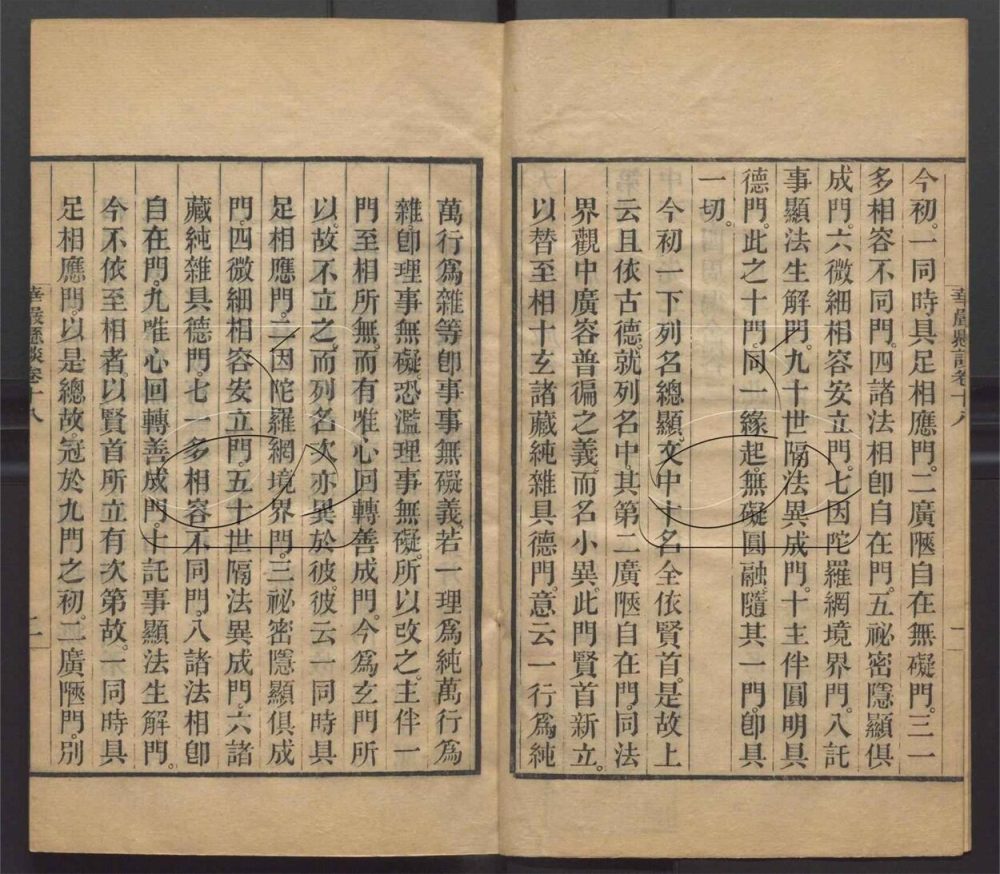 華嚴懸談卷十八
一
今初。一同時具足相應門。二廣陿自在無礙門。三一
多相容不同門。四諸法相卽自在門。五祕密隱顯俱
成門。六微細相容安立門。七因陀羅網境界門。八託
事顯法生解門。九十世隔法異成門。十主伴圓明具
德門。此之十門。同一緣起。無礙圓融。隨其一門。卽具
一切。
今初一下列名總顯。文中十名全依賢首。是故上
云且依古德。就列名中。其第二廣陿自在門。同法
界觀中廣容普徧之義。而名小異。此門賢首新立。
以替至相十玄諸藏純雜具德門。意云一行爲純
萬行爲雜等。卽事事無礙義。若一理爲純萬行爲
雜。卽理事無礙。恐濫理事無礙。所以改之。主伴一
門至相所無。而有唯心回轉善成門。今爲玄門所
以。故不立之。而列名次亦異於彼。彼云一同時具
足相應門。二因陀羅網境界門。三祕密隱顯俱成
門。四微細相容安立門。五十世隔法異成門。六諸
藏純雜具德門。七一多相容不同門。八諸法相卽
自在門。九唯心回轉善成門。十託事顯法生解門。
今不依至相者。以賢首所立有次第故。一同時具
足相應門。以是總故。冠於九門之初。二廣陿門。別
華嚴懸談卷十八
二